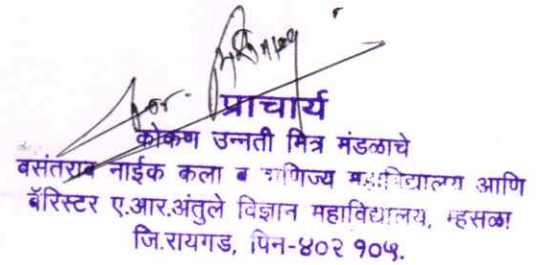 for
प्राचार्य
कोकण उन्नती मित्र मंडळाचे
वसंतराव नाईक कला व वाणिज्य महाविद्यालय आणि
बॅरिस्टर ए.आर.अंतुले विज्ञान महाविद्यालय, म्हसळा
जि.रायगड, पिन-४०२ १०५.